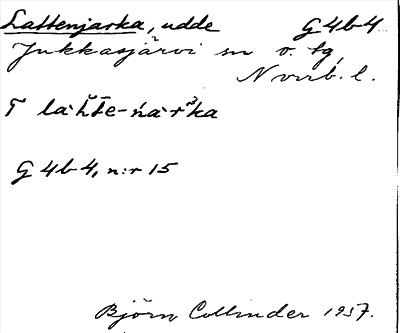 Lattenjarka, udde G4b4
Jukkasjärvi sn o. tg,
Norrb. l.
G4b4, n:r 15
Björn Collinder 1937.